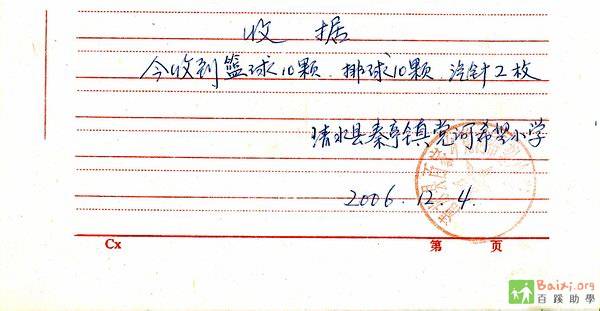 收据
今收到篮球10颗、排球10颗、汽针2枚
清水县秦亭镇党河希望小学
2006.12.4.
Cx 第 页
Baixi.org
百蹊助學